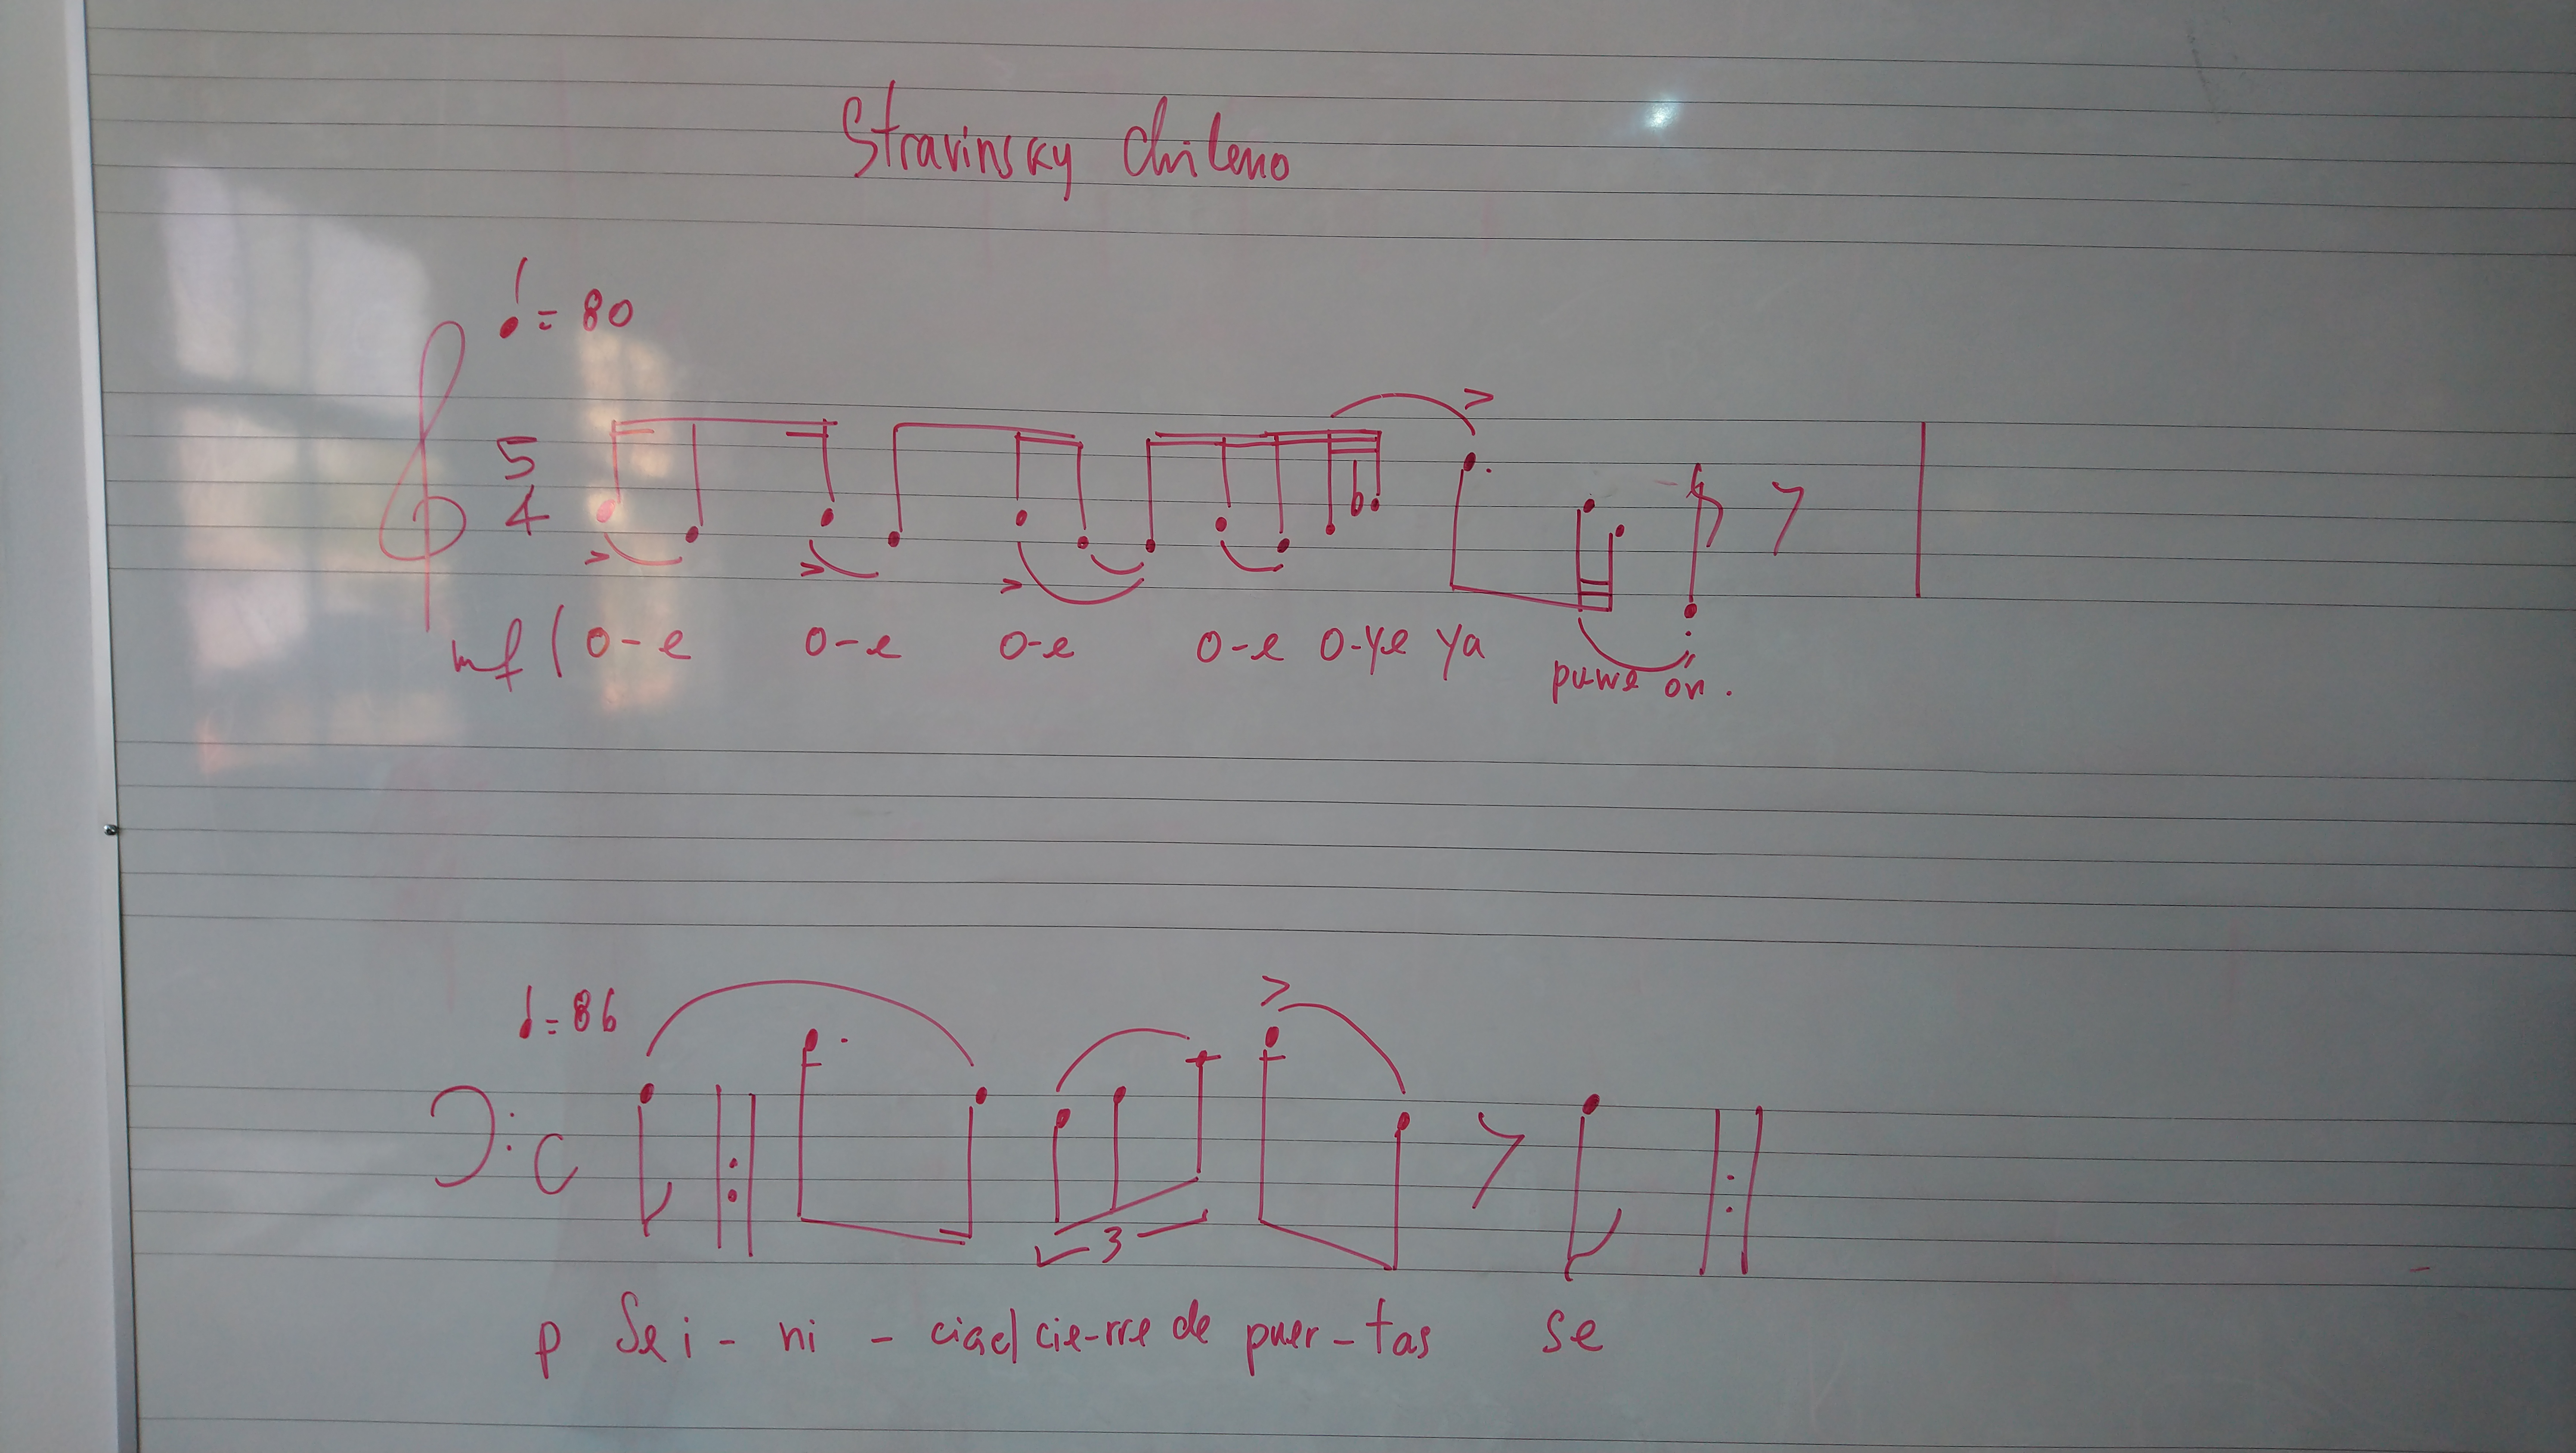 Stravinsky Chileno
♩= 80
5
4
mf (o-e o-e o-e o-e o-ye ya puwe on.
♩= 86
C
3
p Se i - ni - ciael cie-rre de puer-tas se